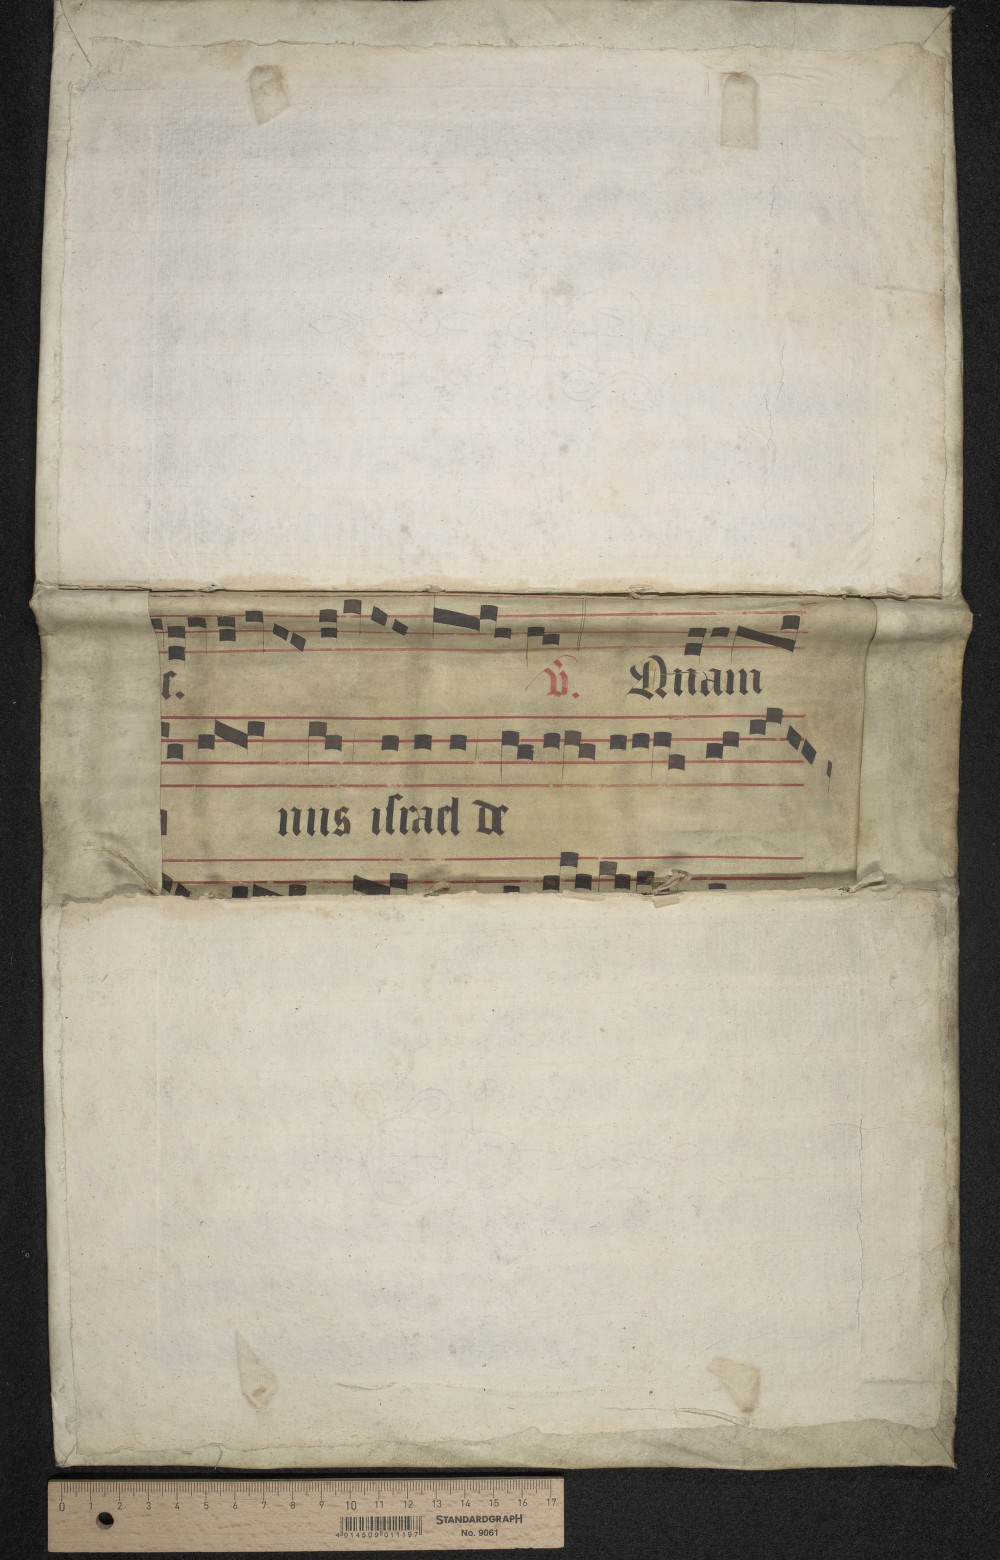 v̄. Quam
nus israel de
0 1 2 3 4 5 6 7 8 9 10 11 12 13 14 15 16 17
STANDARDGRAPH
4 014509 011197
No. 9061